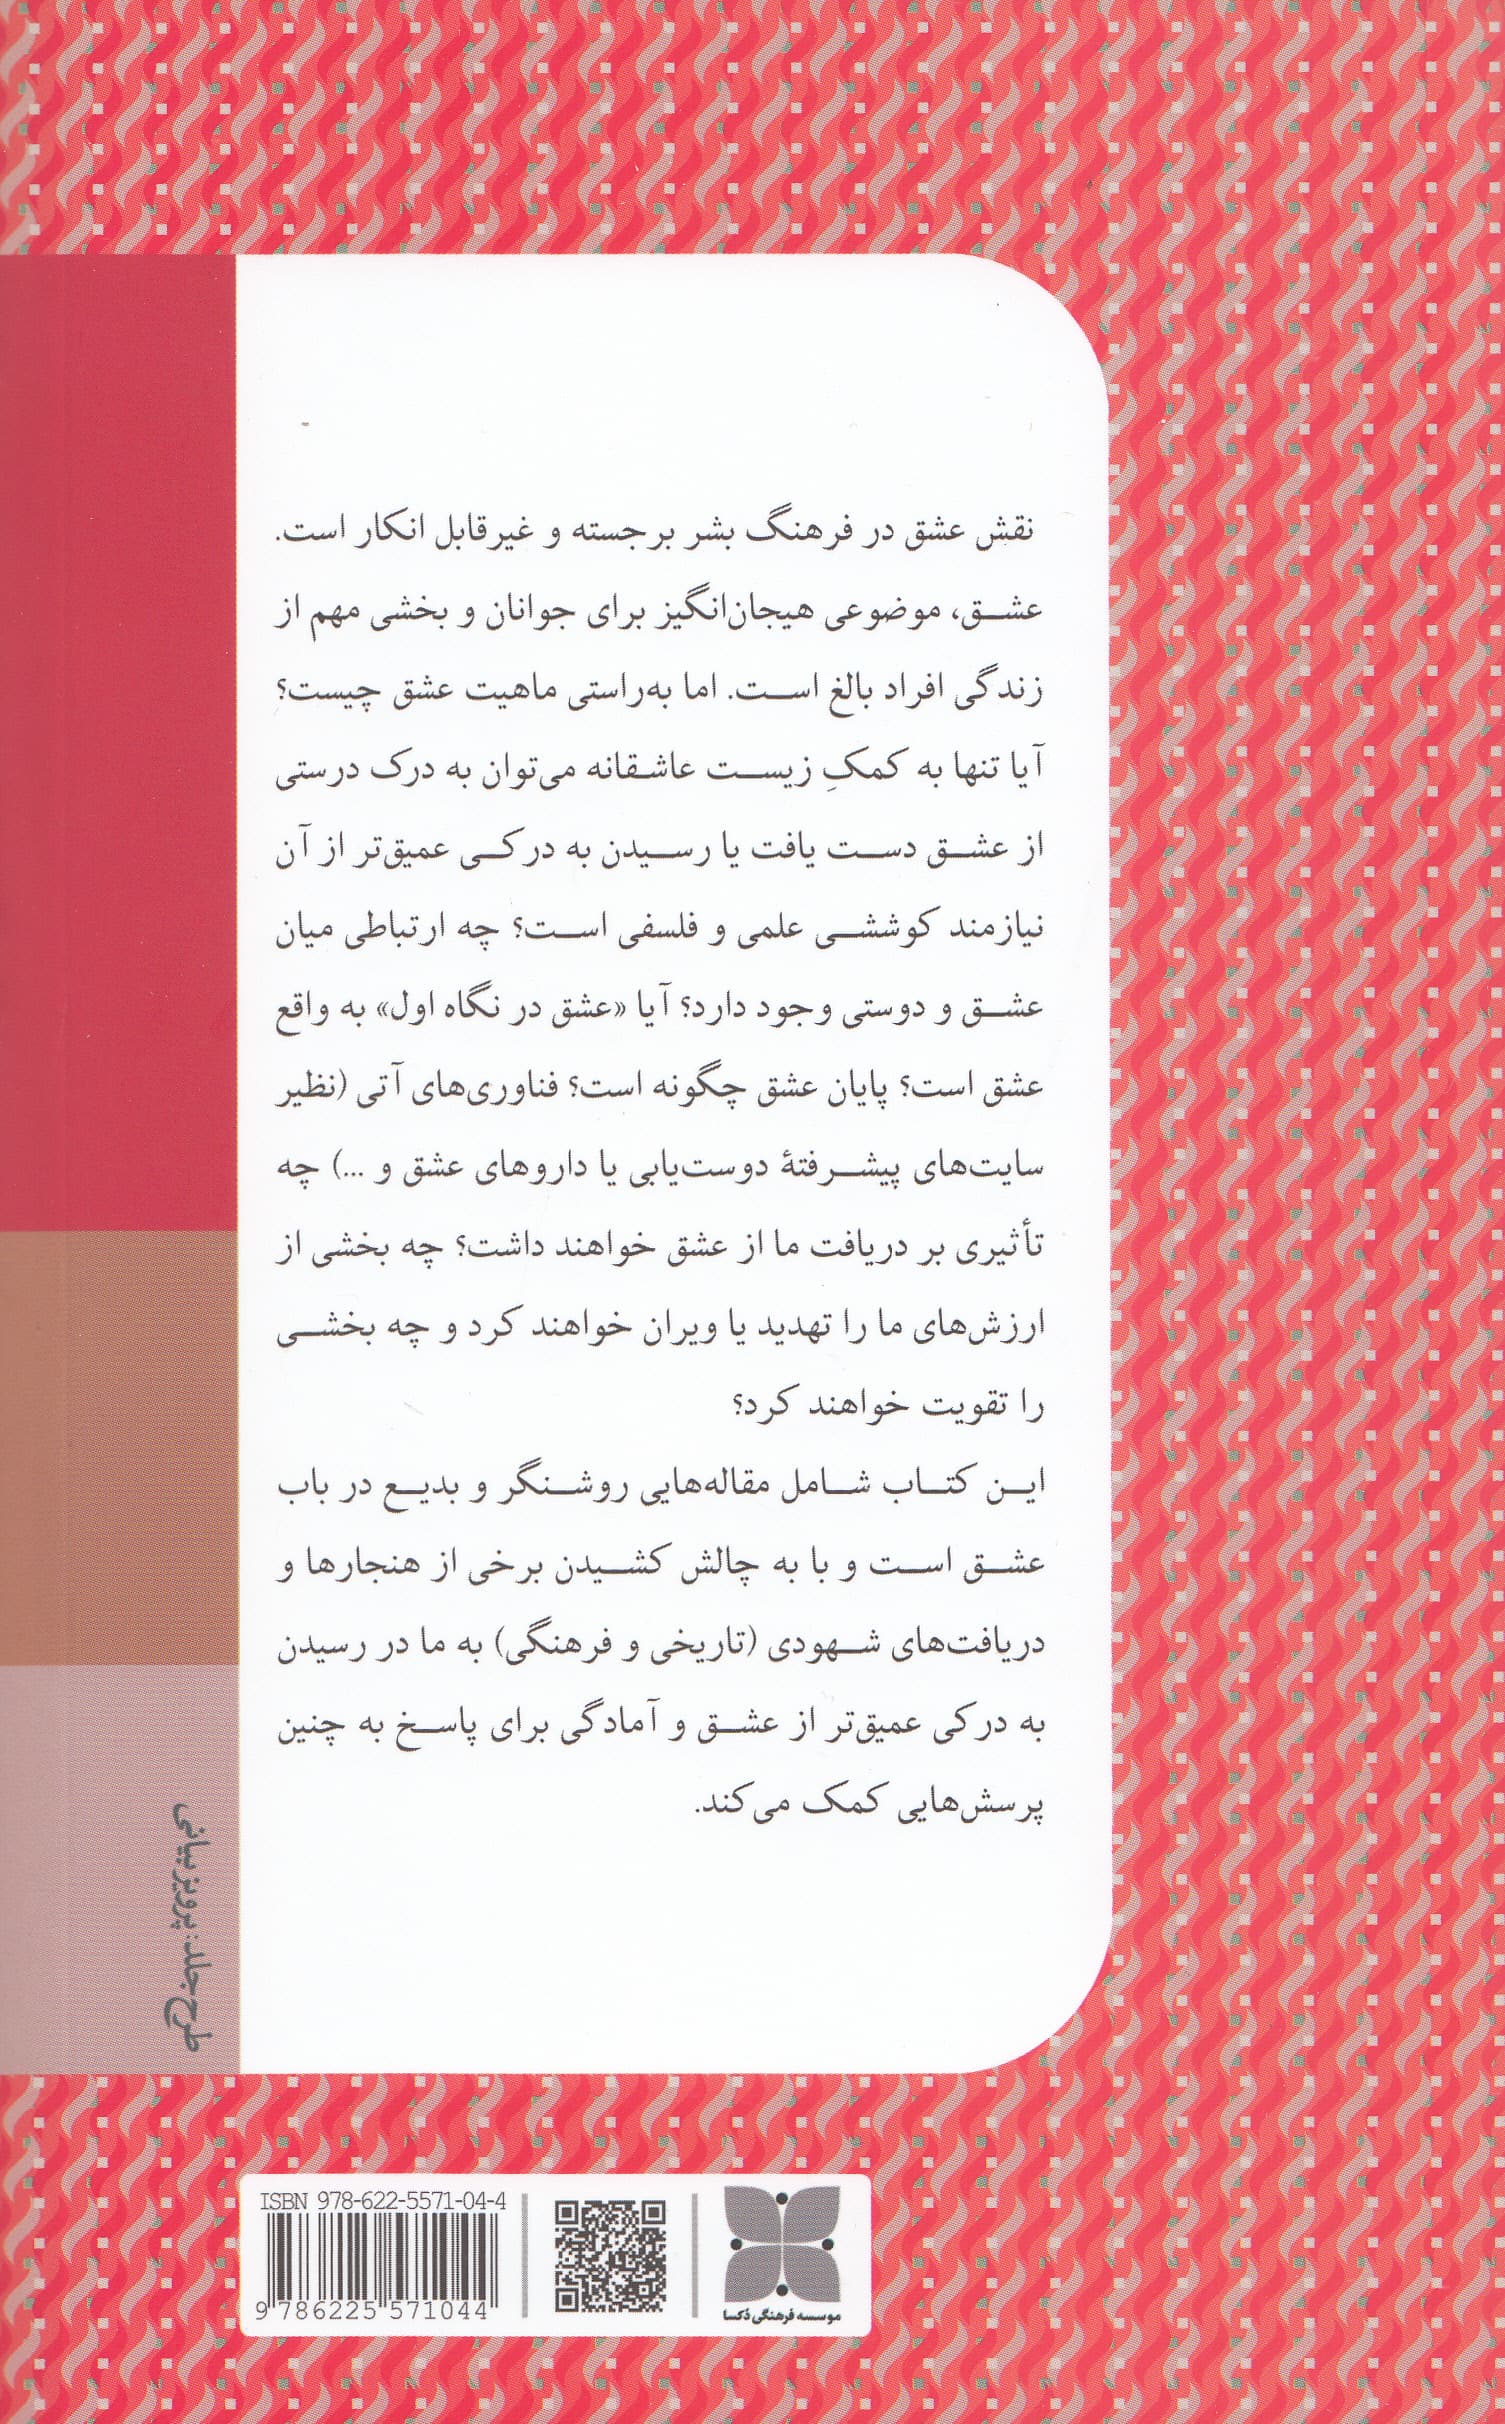 نقش عشق در فرهنگ بشر برجسته و غیرقابل انکار است.
عشق، موضوعی هیجان‌انگیز برای جوانان و بخشی مهم از
زندگی افراد بالغ است. اما به‌راستی ماهیت عشق چیست؟
آیا تنها به کمکِ زیست عاشقانه می‌توان به درک درستی
از عشق دست یافت یا رسیدن به درکی عمیق‌تر از آن
نیازمند کوششی علمی و فلسفی است؟ چه ارتباطی میان
عشق و دوستی وجود دارد؟ آیا «عشق در نگاه اول» به واقع
عشق است؟ پایان عشق چگونه است؟ فناوری‌های آتی (نظیر
سایت‌های پیشرفتهٔ دوست‌یابی یا داروهای عشق و ...) چه
تأثیری بر دریافت ما از عشق خواهند داشت؟ چه بخشی از
ارزش‌های ما را تهدید یا ویران خواهند کرد و چه بخشی
را تقویت خواهند کرد؟
این کتاب شامل مقاله‌هایی روشنگر و بدیع در باب
عشق است و با به چالش کشیدن برخی از هنجارها و
دریافت‌های شهودی (تاریخی و فرهنگی) به ما در رسیدن
به درکی عمیق‌تر از عشق و آمادگی برای پاسخ به چنین
پرسش‌هایی کمک می‌کند.
طرح جلد: پرویز بیانی
موسسه فرهنگی دُکسا
ISBN 978-622-5571-04-4
9 786225 571044